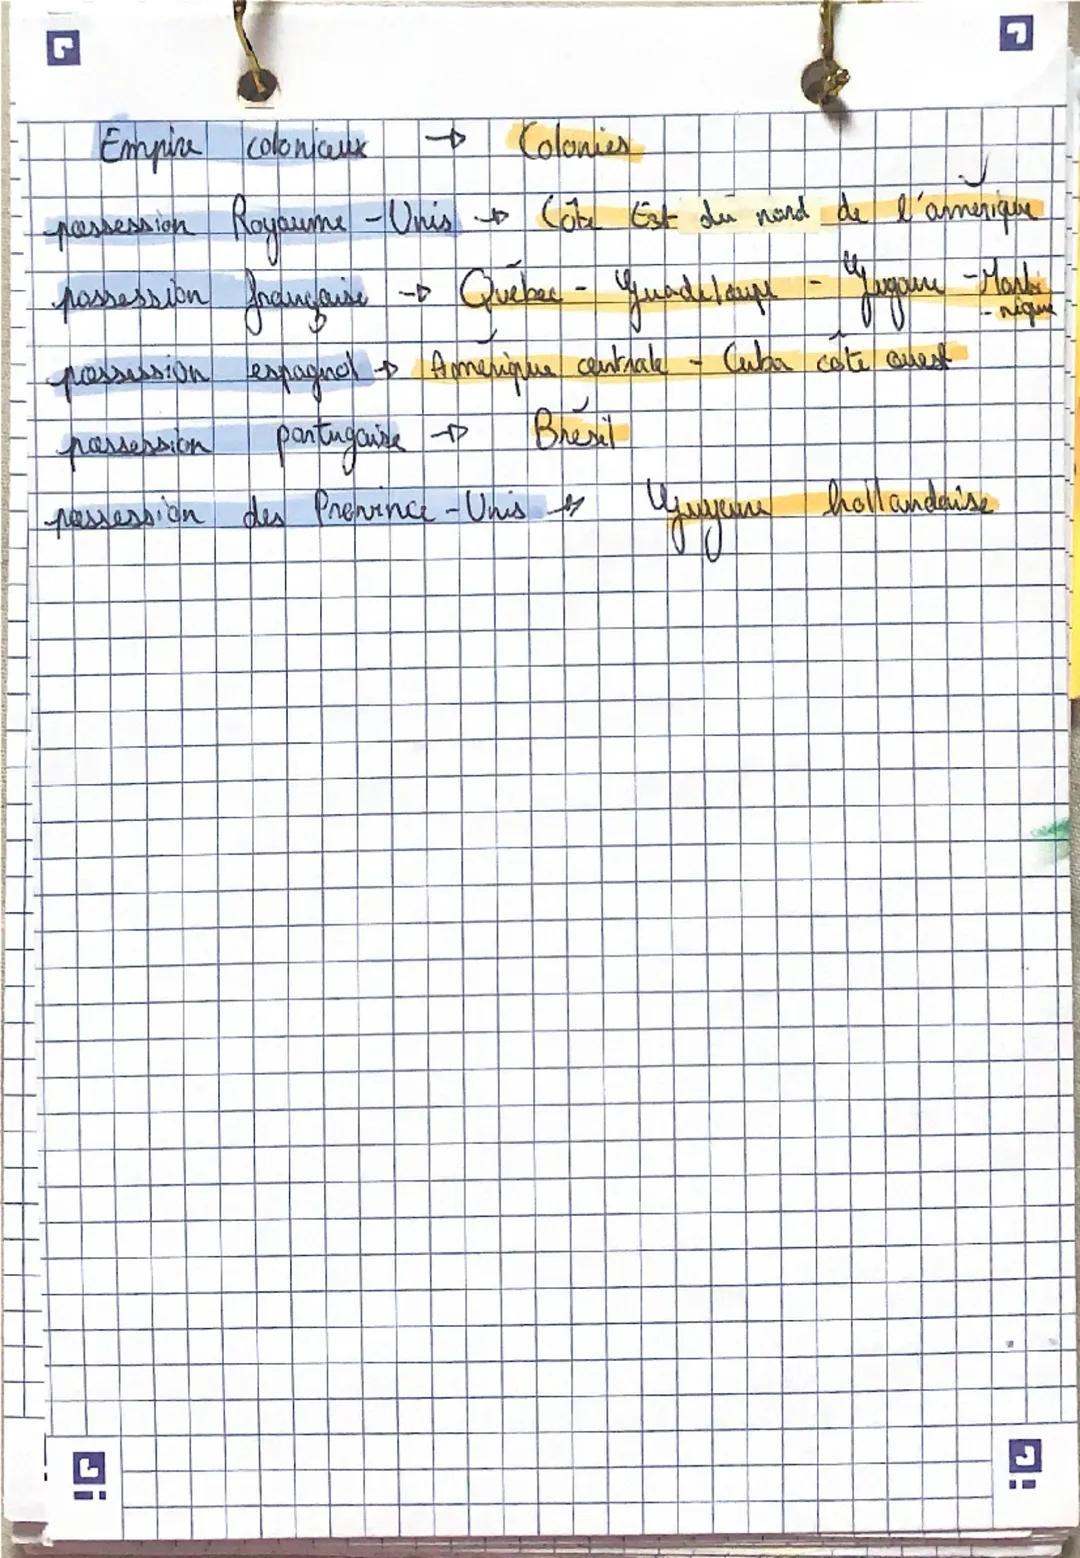 Empire coloniaux → Colonies
possession Royaume-Unis → Côte Est du nord de l'amérique
possession française → Québec - Guadeloupe - Guyane - Marti
- nique
possession espagnol → Amérique centrale - Cuba côte ouest
possession portugaise → Brésil
possession des Province-Unis → Guyane hollandaise